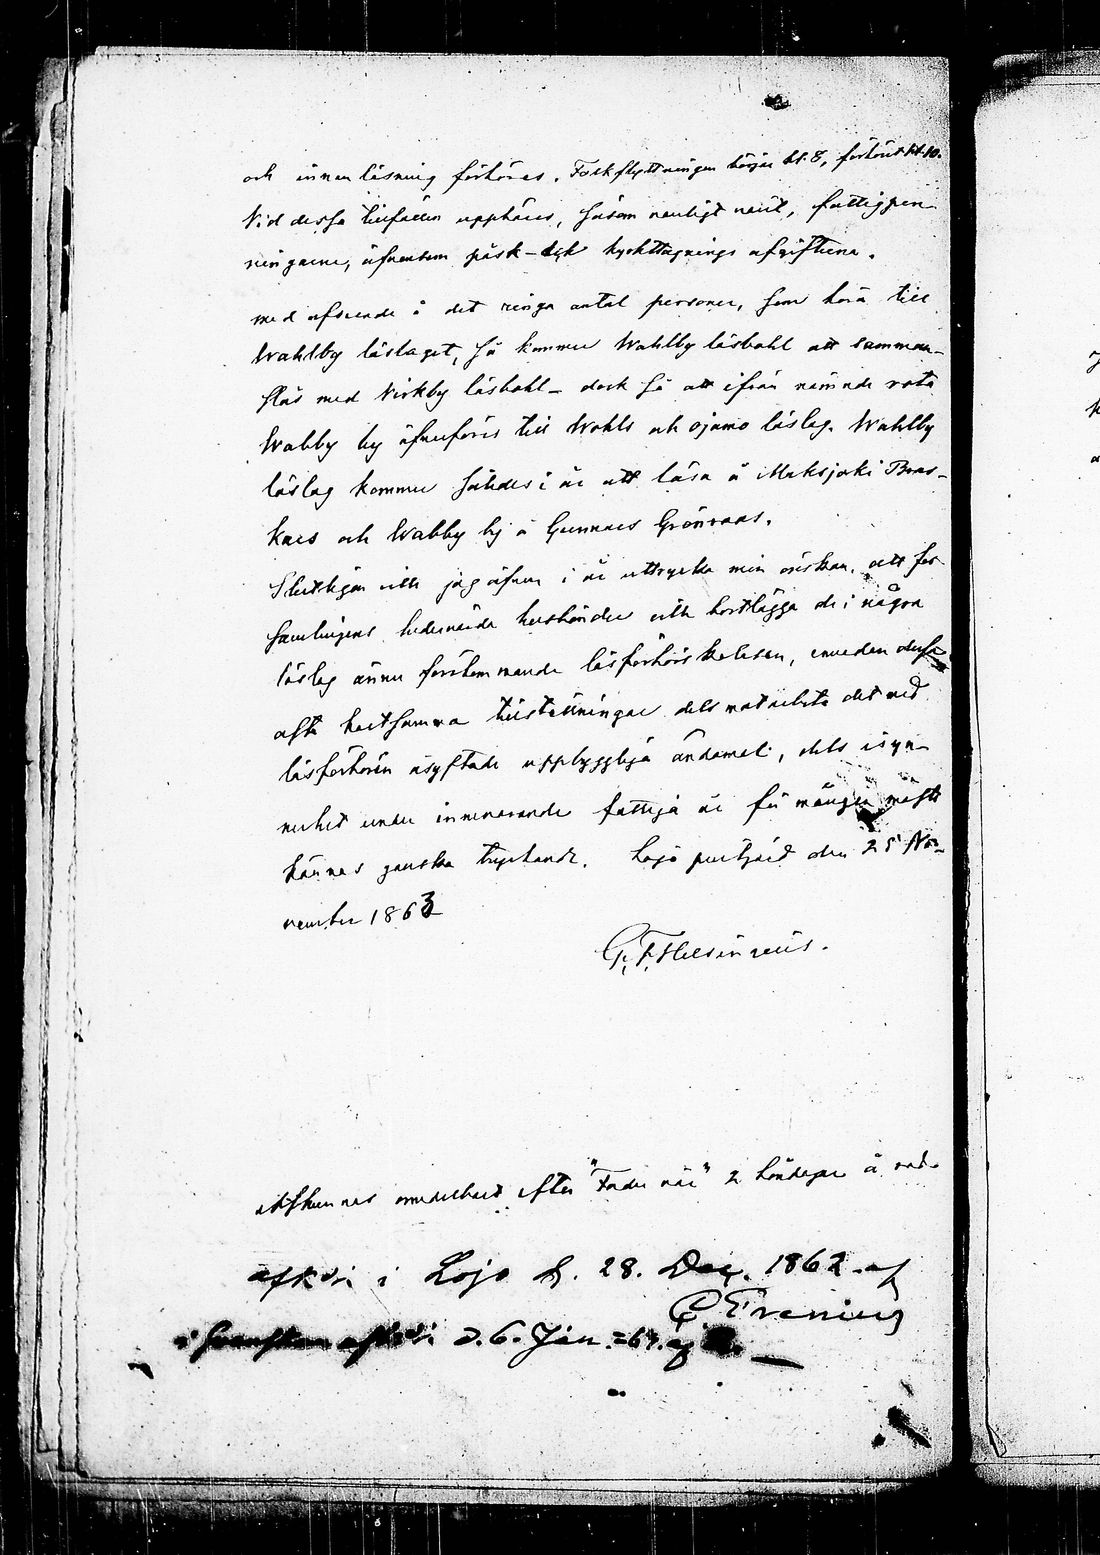 och innan läsning förhöras. Folkskyttningen börjar kl. 8, förhöret kl. 10.
Vid dessa tillfällen uppbäres, såsom vanligt varit, fattigpen-
ningarne, äfvensom påsk- och nyckttagnings afgifterna.
med afseende å det ringa antal personer, som höra till
Wahlby läslaget, så kommer Wahlby läsbohl att samman-
slås med Virkby läsbohl – dock så att ifrån nämnde rote
Wabby by öfverföres till Wohls och ojamo läslag. Wahlby
läslag kommer således i år att läsa å Maksjoki Bras-
kars och Wabby by å Gunnars Grönroos.
Slutligen vill jag äfven i år uttrycka min önskan, att för-
samlingens hedervärda husbönder ville bortlägga de i några
läslag ännu förekommande läsförhörskalasen, emedan dessa
ofta kostsamma tillställningar dels motarbeta det med
läsförhören åsyftade uppbyggliga ändamål, dels isyn-
nerhet under innevarande fattiga år för mången måste
kännas ganska tryckande. Lojo prestgård den 25 No-
vember 1863
G. F. Helsingius.
Afkunnas omedelbart efter "Fader vår" 2 söndagar å rad.
afkdt i Lojo d. 28. Dec. 1862 af
C Frenius
d. 6. Jan. =64. af